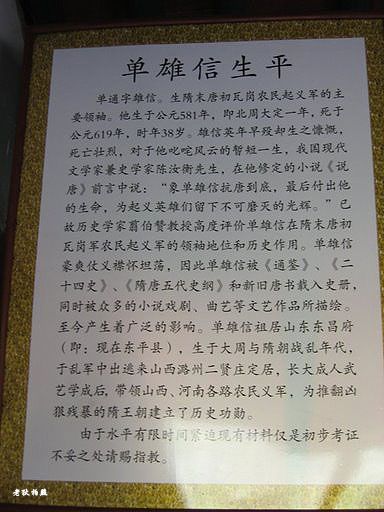 单雄信生平
单通字雄信。生隋末唐初瓦岗农民起义军的主
要领袖。他生于公元581年，即北周大定一年，死于
公元619年，时年38岁。雄信英年早殁却生之慷慨，
死亡壮烈，对于他叱咤风云的暂短一生，我国现代
文学家兼史学家陈汝衡先生，在他修定的小说《说
唐》前言中说：“象单雄信抗唐到底，最后付出他
的生命，为起义英雄们留下不可磨灭的光辉。”已
故历史学家翦伯赞教授高度评价单雄信在隋末唐初
瓦岗军农民起义军的领袖地位和历史作用。单雄信
豪爽仗义襟怀坦荡，因此单雄信被《通鉴》、《二
十四史》、《隋唐五代史纲》和新旧唐书载入史册，
同时被众多的小说戏剧、曲艺等文艺作品所描绘。
至今产生着广泛的影响。单雄信祖居山东东昌府
（即：现在东平县），生于大周与隋朝战乱年代，
于乱军中出逃来山西潞州二贤庄定居，长大成人武
艺学成后，带领山西、河南各路农民义军，为推翻凶
狠残暴的隋王朝建立了历史功勋。
由于水平有限时间紧迫现有材料仅是初步考证
不妥之处请赐指教。
老狄拍照